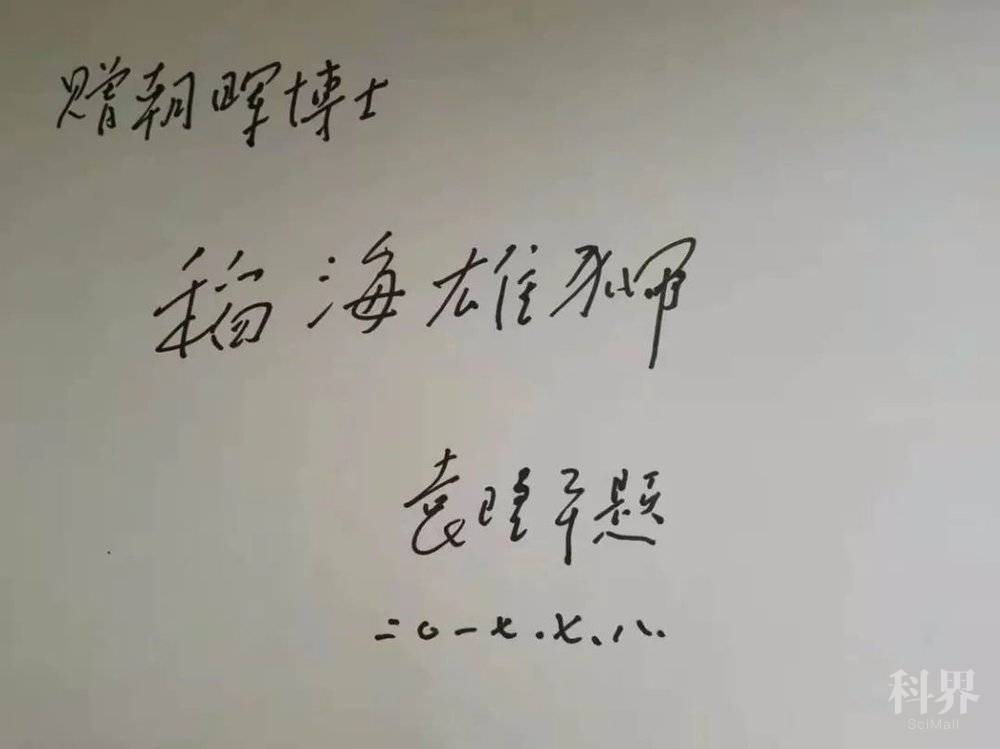 赠朝晖博士
稻海雄狮
袁隆平题
二〇一七.七.八.
科界
SciMall